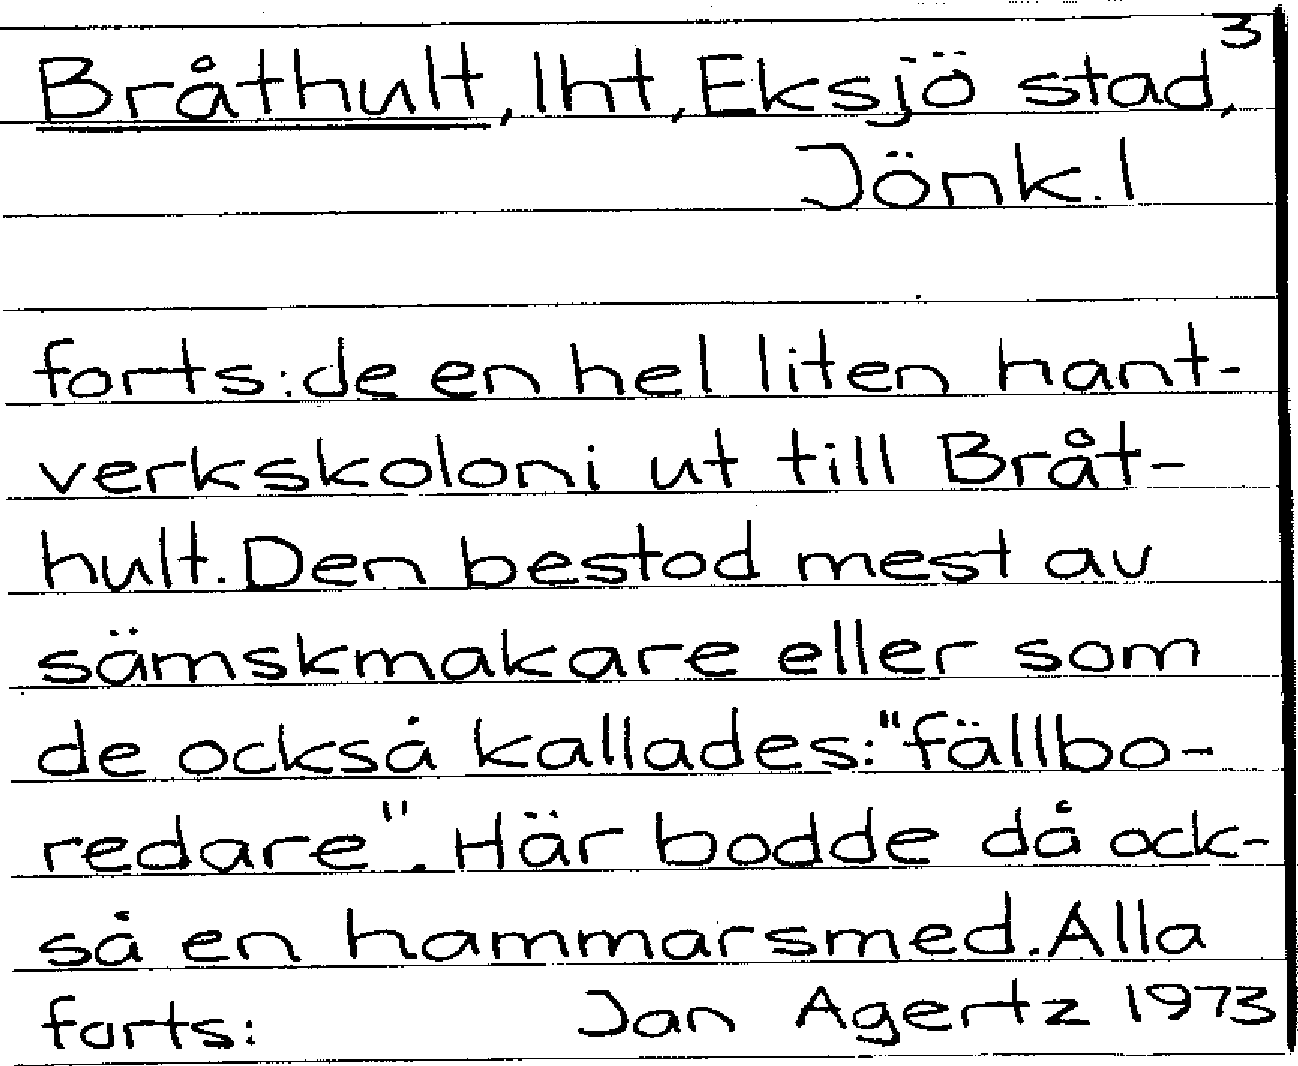 3
Bråthult, lht, Eksjö stad,
Jönk. l
forts: de en hel liten hant-
verkskoloni ut till Bråt-
hult. Den bestod mest av
sämskmakare eller som
de också kallades: "fällbo-
redare". Här bodde då ock-
så en hammarsmed. Alla
forts: Jan Agertz 1973